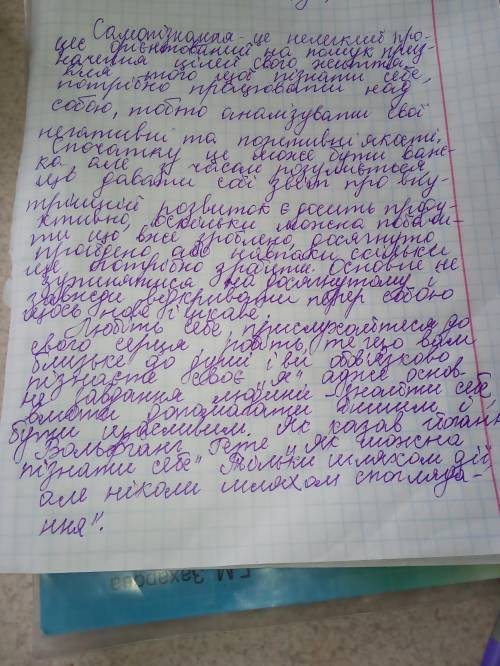 Самопізнання - це нелегкий про-
цес орієнтований на пошук приз-
начення цілей свого життя,
для того щоб пізнати себе,
потрібно працювати над
собою, тобто аналізувати свої
негативні та позитивні якості.
Спочатку це може бути важ-
ко але з часом розумієтеся
що давати собі звіт про вну-
трішній розвиток є досить прод-
уктивно, оскільки можна побачи-
ти що вже зроблено, досягнуто,
пройдено, або навпаки скільки
ще потрібно зробити. Основне не
зупинятися на досягнутому і
завжди відкривати перед собою
щось нове і цікаве.
Любіть себе прислухайтеся до
свого серця робіть те що вам
близьке до душі і ви обов'язково
пізнаєте своє "я" адже основ-
не завдання людини знайти себе
вміти допомагати іншим і
бути щасливим. Як казав Йоганн
Вольфганг Гете "Як можна
пізнати себе" Тільки шляхом дії
але ніколи шляхом споглядa-
ння".
Г.М. Захарова